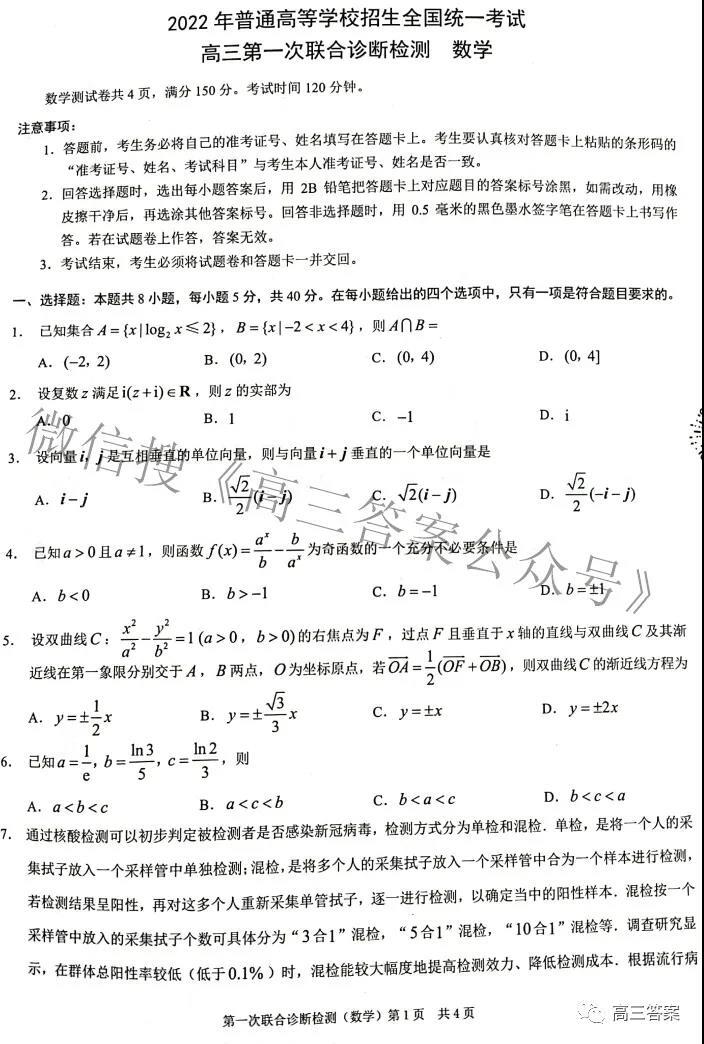 2022 年普通高等学校招生全国统一考试
高三第一次联合诊断检测 数学
数学测试卷共 4 页，满分 150 分。考试时间 120 分钟。
注意事项：
1. 答题前，考生务必将自己的准考证号、姓名填写在答题卡上。考生要认真核对答题卡上粘贴的条形码的
“准考证号、姓名、考试科目”与考生本人准考证号、姓名是否一致。
2. 回答选择题时，选出每小题答案后，用 2B 铅笔把答题卡上对应题目的答案标号涂黑，如需改动，用橡
皮擦干净后，再选涂其他答案标号。回答非选择题时，用 0.5 毫米的黑色墨水签字笔在答题卡上书写作
答。若在试题卷上作答，答案无效。
3. 考试结束，考生必须将试题卷和答题卡一并交回。
一、选择题：本题共 8 小题，每小题 5 分，共 40 分。在每小题给出的四个选项中，只有一项是符合题目要求的。
1. 已知集合 A = {x | log₂ x ⩽ 2}，B = {x | −2 < x < 4}，则 A⋂B =
A. (−2, 2) B. (0, 2) C. (0, 4) D. (0, 4]
2. 设复数 z 满足 i(z + i) ∈ R，则 z 的实部为
A. 0 B. 1 C. −1 D. i
3. 设向量 i, j 是互相垂直的单位向量，则与向量 i + j 垂直的一个单位向量是
A. i − j B. √2/2 (i − j) C. √2(i − j) D. √2/2 (−i − j)
4. 已知 a > 0 且 a ≠ 1，则函数 f(x) = aˣ/b − b/aˣ 为奇函数的一个充分不必要条件是
A. b < 0 B. b > −1 C. b = −1 D. b = ±1
5. 设双曲线 C：x²/a² − y²/b² = 1 (a > 0，b > 0) 的右焦点为 F，过点 F 且垂直于 x 轴的直线与双曲线 C 及其渐
近线在第一象限分别交于 A，B 两点，O 为坐标原点，若 OA = 1/2 (OF + OB)，则双曲线 C 的渐近线方程为
A. y = ±1/2 x B. y = ±√3/3 x C. y = ±x D. y = ±2x
6. 已知 a = 1/e, b = ln3/5, c = ln2/3，则
A. a < b < c B. a < c < b C. b < a < c D. b < c < a
7. 通过核酸检测可以初步判定被检测者是否感染新冠病毒，检测方式分为单检和混检．单检，是将一个人的采
集拭子放入一个采样管中单独检测；混检，是将多个人的采集拭子放入一个采样管中合为一个样本进行检测，
若检测结果呈阳性，再对这多个人重新采集单管拭子，逐一进行检测，以确定当中的阳性样本．混检按一个
采样管中放入的采集拭子个数可具体分为“3 合 1”混检，“5 合 1”混检，“10 合 1”混检等．调查研究显
示，在群体总阳性率较低（低于 0.1%）时，混检能较大幅度地提高检测效力、降低检测成本．根据流行病
第一次联合诊断检测（数学）第 1 页 共 4 页
微信搜《高三答案公众号》
高三答案